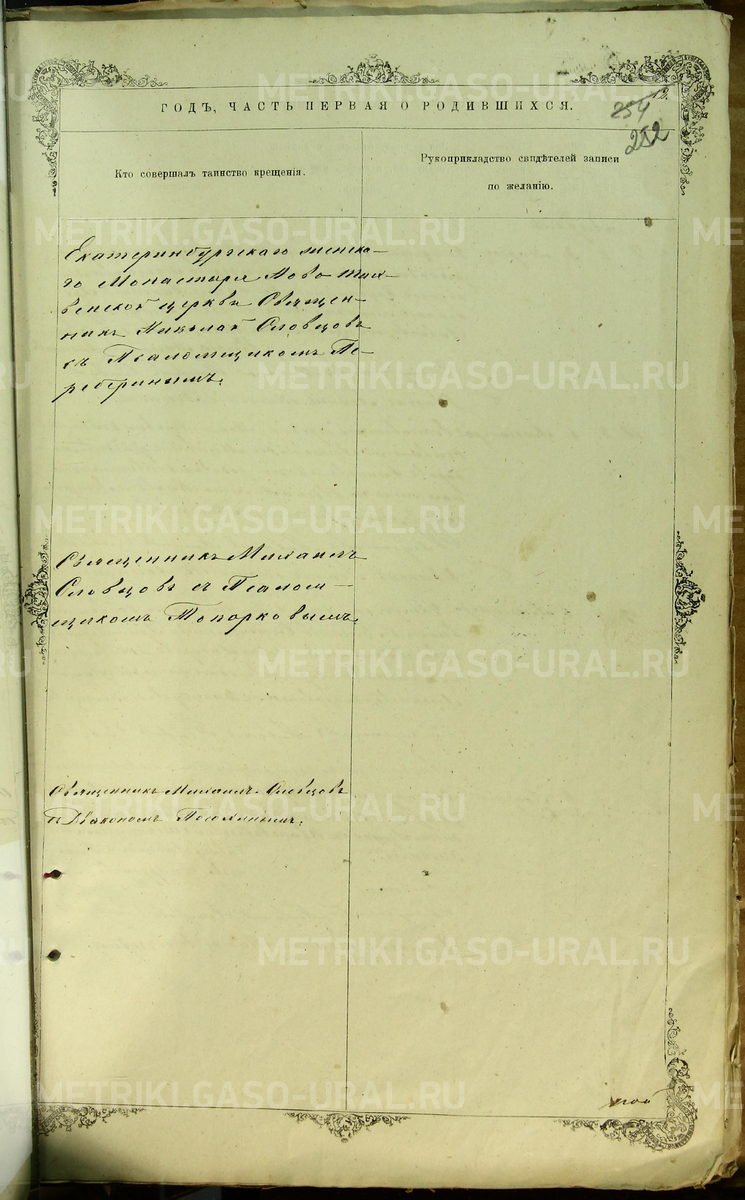 ГОДЪ, ЧАСТЬ ПЕРВАЯ О РОДИВШИХСЯ.
254
252
Кто совершалъ таинство крещенія.
Рукоприкладство свидѣтелей записи
по желанію.
Екатеринбургскаго женска-
го Монастыря Ново Тих-
винской церкви Священ-
никъ Николай Словцовъ
съ Псаломщикомъ Пе-
ребринымъ.
Священникъ Михаилъ
Словцовъ съ Псалом-
щикомъ Топорковымъ.
Священникъ Михаилъ Словцовъ
съ Діакономъ
METRIKI.GASO-URAL.RU